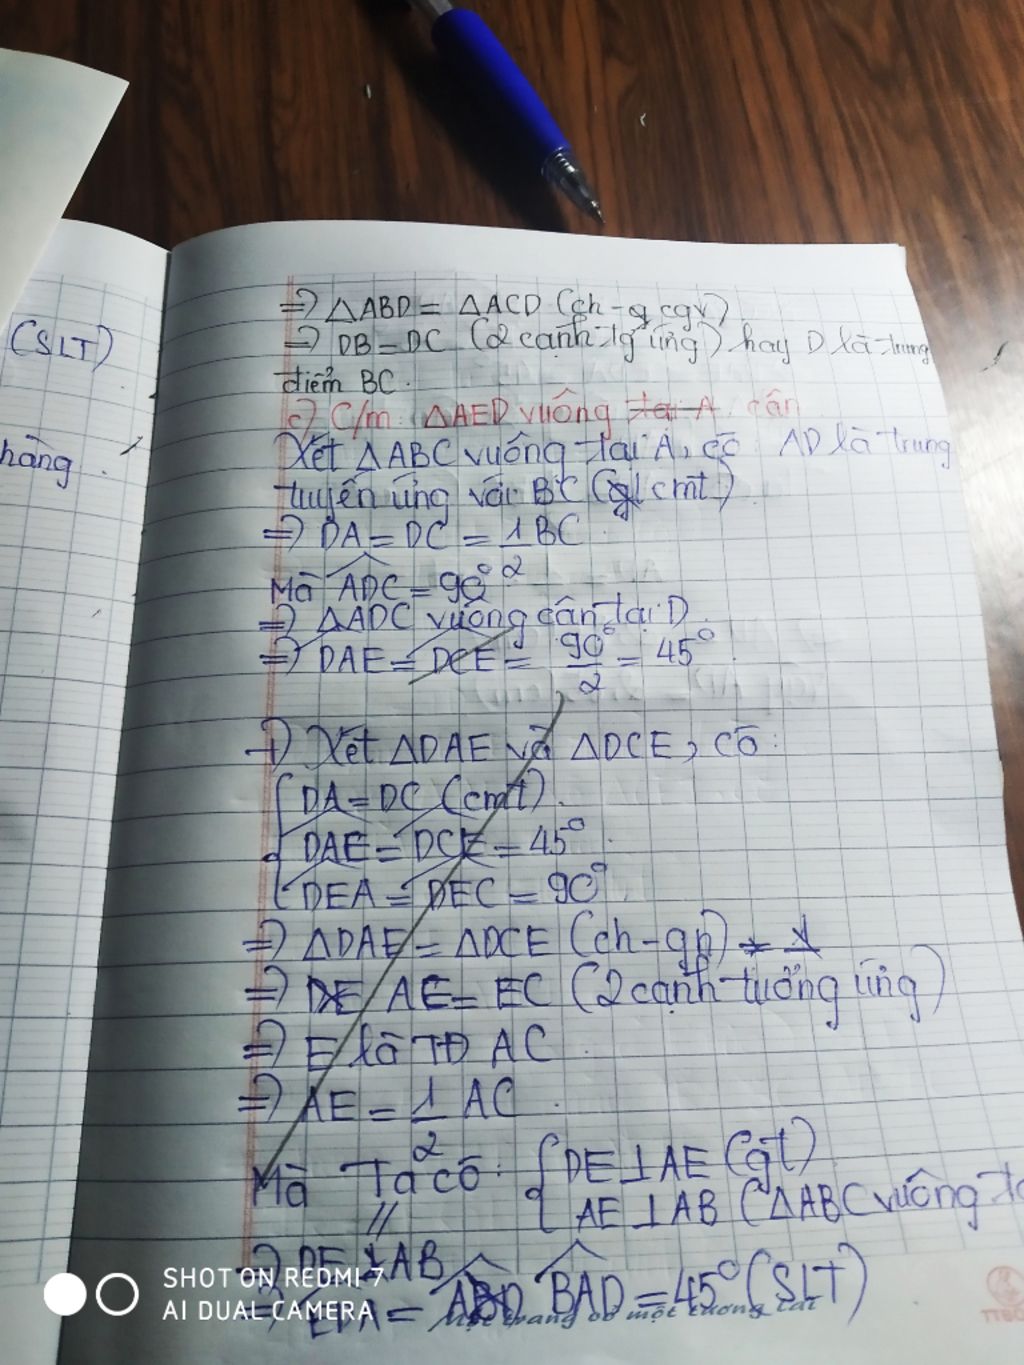 (SLT)
hàng.
=> △ABD = △ACD (ch - cgv)
=> DB = DC (2 cạnh tg ứng) hay D là trung
điểm BC.
c) C/m: △AED vuông tại A cân
Xét △ABC vuông tại A, có AD là trung
tuyến ứng với BC (cmt)
=> DA = DC = 1/2 BC
Mà ADC = 90°
=> △ADC vuông cân tại D.
=> DAE = DCE = 90°/2 = 45°
+) Xét △DAE và △DCE, có:
DA = DC (cmt).
DAE = DCE = 45°.
DEA = DEC = 90°.
=> △DAE = △DCE (ch - gn)
=> DE AE = EC (2 cạnh tương ứng)
=> E là TĐ AC.
=> AE = 1/2 AC.
Mà Ta có: DE ⊥ AE (gt)
AE ⊥ AB (△ABC vuông
=> DE // AB
=> EDA = ABD BAD = 45° (SLT)
SHOT ON REDMI 7
AI DUAL CAMERA
Một trang vở một tương lai